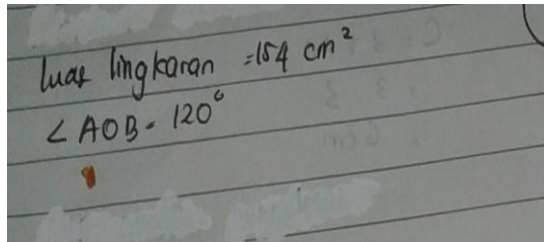 luas lingkaran = 154 cm²
∠ AOB = 120°